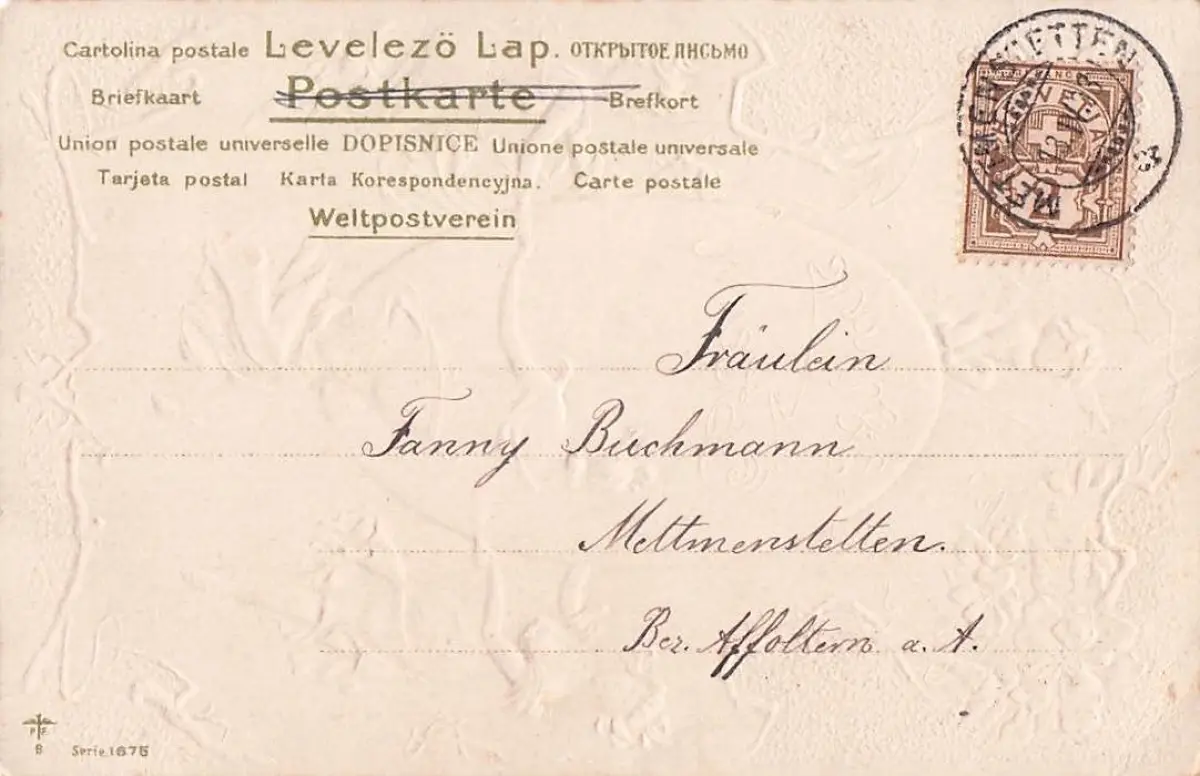 Cartolina postale Levelező Lap. ОТКРЫТОЕ ПИСЬМО
Briefkaart Postkarte Brefkort
Union postale universelle DOPISNICE Unione postale universale
Tarjeta postal Karta Korespondencyjna. Carte postale
Weltpostverein
METTMENSTETTEN
Fräulein
Fanny Buchmann
Mettmenstetten.
Bez. Affoltern a. A.
P F
8 Serie 1675